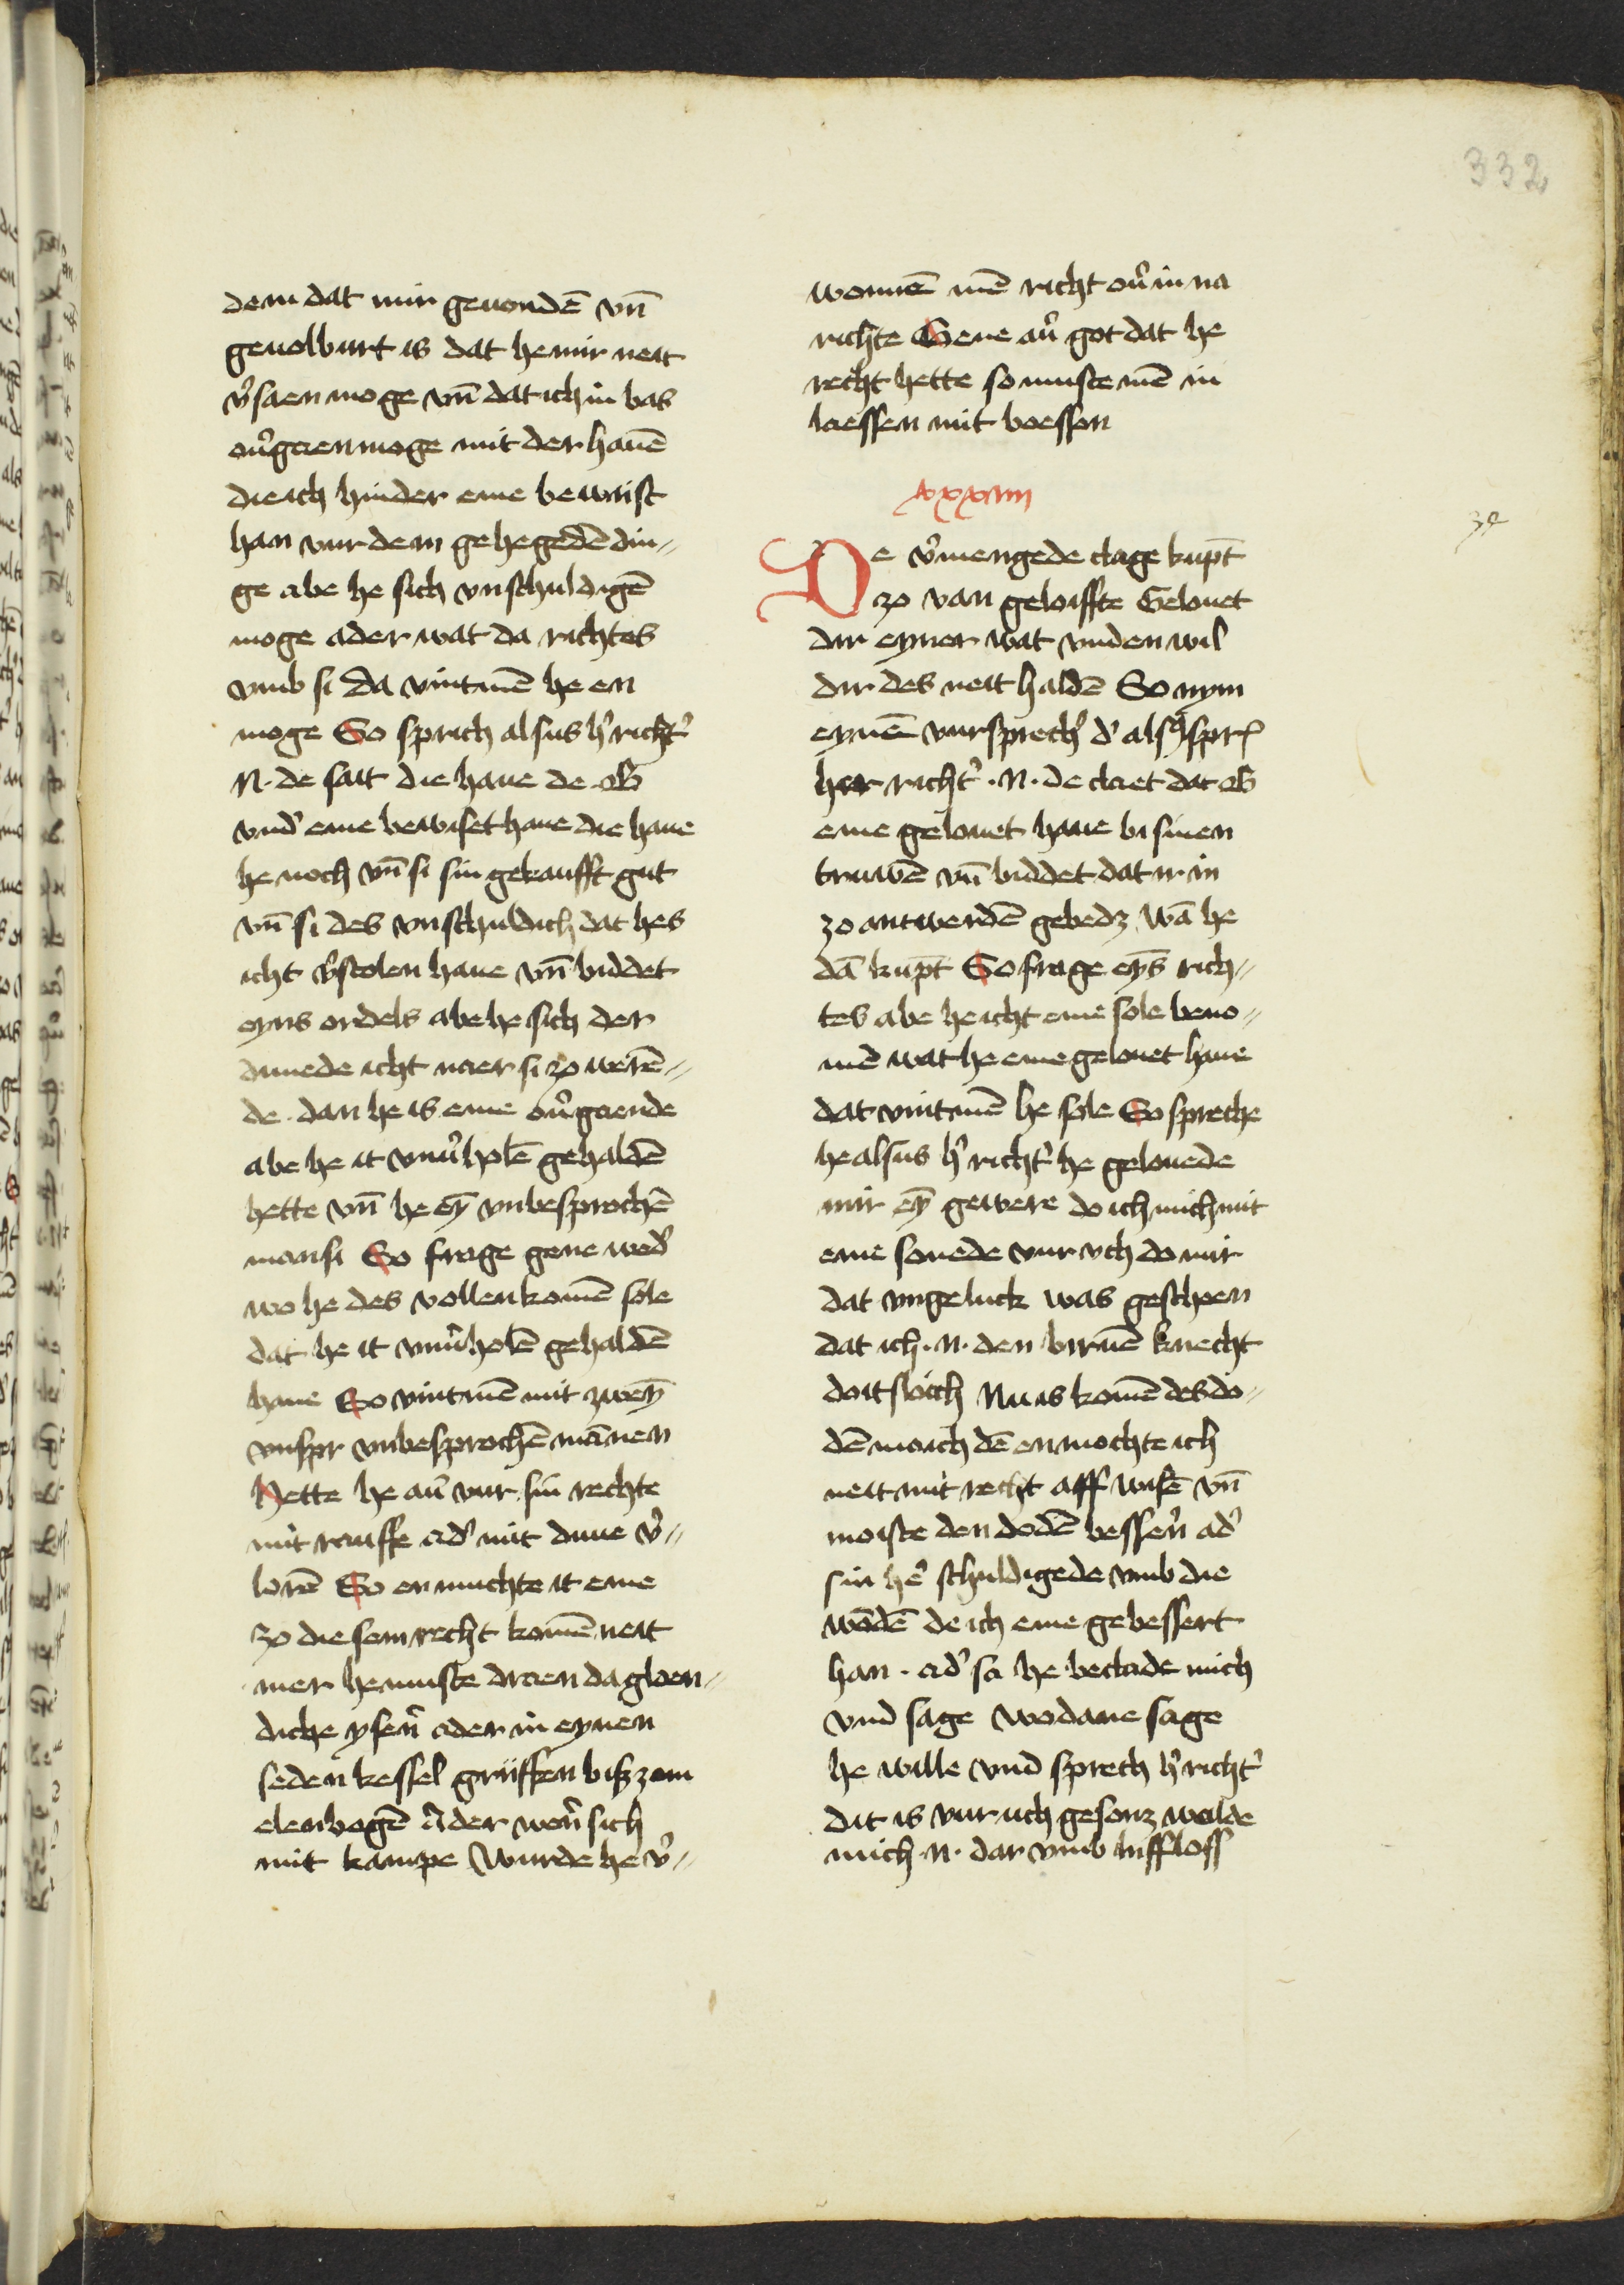 332
dem dat mir gevondē vn̄
gevolburt is dat he mir neit
v̓saen moge vn̄ dat ich in bas
ou̓gaen moge mit der hauē
die ich hinder eme bewaist
han vur dem gehegedē din⸗
ge abe he sich vnschuldigē
moge ader wat da richtes
vmb si Da vintmē he en
moge So sprich alsus h̓ richt̓
N. de sait die haue de .B.
vnd̓ eme bewiset haue die haue
he noch vn̄ si sin gekaufft gut
vn̄ si des vnschuldich dat hes
icht v̓stolen haue vn̄ biddet
eyns ordels abe he sich der
duuede icht naer si zo werē⸗
de . dan he is eme ou̓gaende
abe he it vnu̓holē gehaldē
hette vn̄ he eȳ vnbesprochē
man si So frage gene wed̓
wo he des vollenkomē sole
dat he it vnu̓holē gehaldē
haue So vintmē mit zweȳ
vnspr vnbesprochē mānen
Hette he au̓ vur sin rechte
mit rauffe ad̓ mit duue v̓⸗
lorē So en muchte it eme
zo diesem recht komē neit
mer he muste draen da gloen⸗
diche ysen̄ ader in eynen
seden kessel griiffen bisz zom
elenbogē Ader wer̓ sich
mit kampe Wurde he v̓⸗
wonnē mē richt ou̓ in na
richte Geue au̓ got dat he
recht hette so muste mē in
laessen mit boessen
xxxiiii
34
De v̓mengede clage kupt̄
zo van geloiffte Gelouet
dir eyner wat vnden wil
dir des neit haldē So nym
eynē vursprech̓ d̓ alsus spr̄
her richt̓ . N . de claet dat .B.
eme gelouet haue bi sinen
truwē vn̄ biddet dat ir in
zo antwerdē gebedz Wā he
dā kupt̄ So frage eys̄ rich⸗
tes abe he icht eme sole beno⸗
men wat he eme gelouet haue
dat vintmē he sole So spreche
he alsus h̓ richt̓ he gelouede
mir eȳ gewere do ich mich mit
eme sonede vur vch do mir
dat vngeluck was geschen
dat ich . N . den biruē knecht
doitsloich Nu is komē des do⸗
dē moich dē en mochte ich
neit mit recht aff wisē vn̄
moiste den dodē besser̄ ad̓
sin he̓ schuldigede vmb die
wōdē de ich eme gebessert
han . ad̓ sa he beclade mich
vnd sage wodane sage
he wille vnd sprech h̓ richt̓
dit is vur uch gesonz wolde
mich . N . dar vmb liiffloss